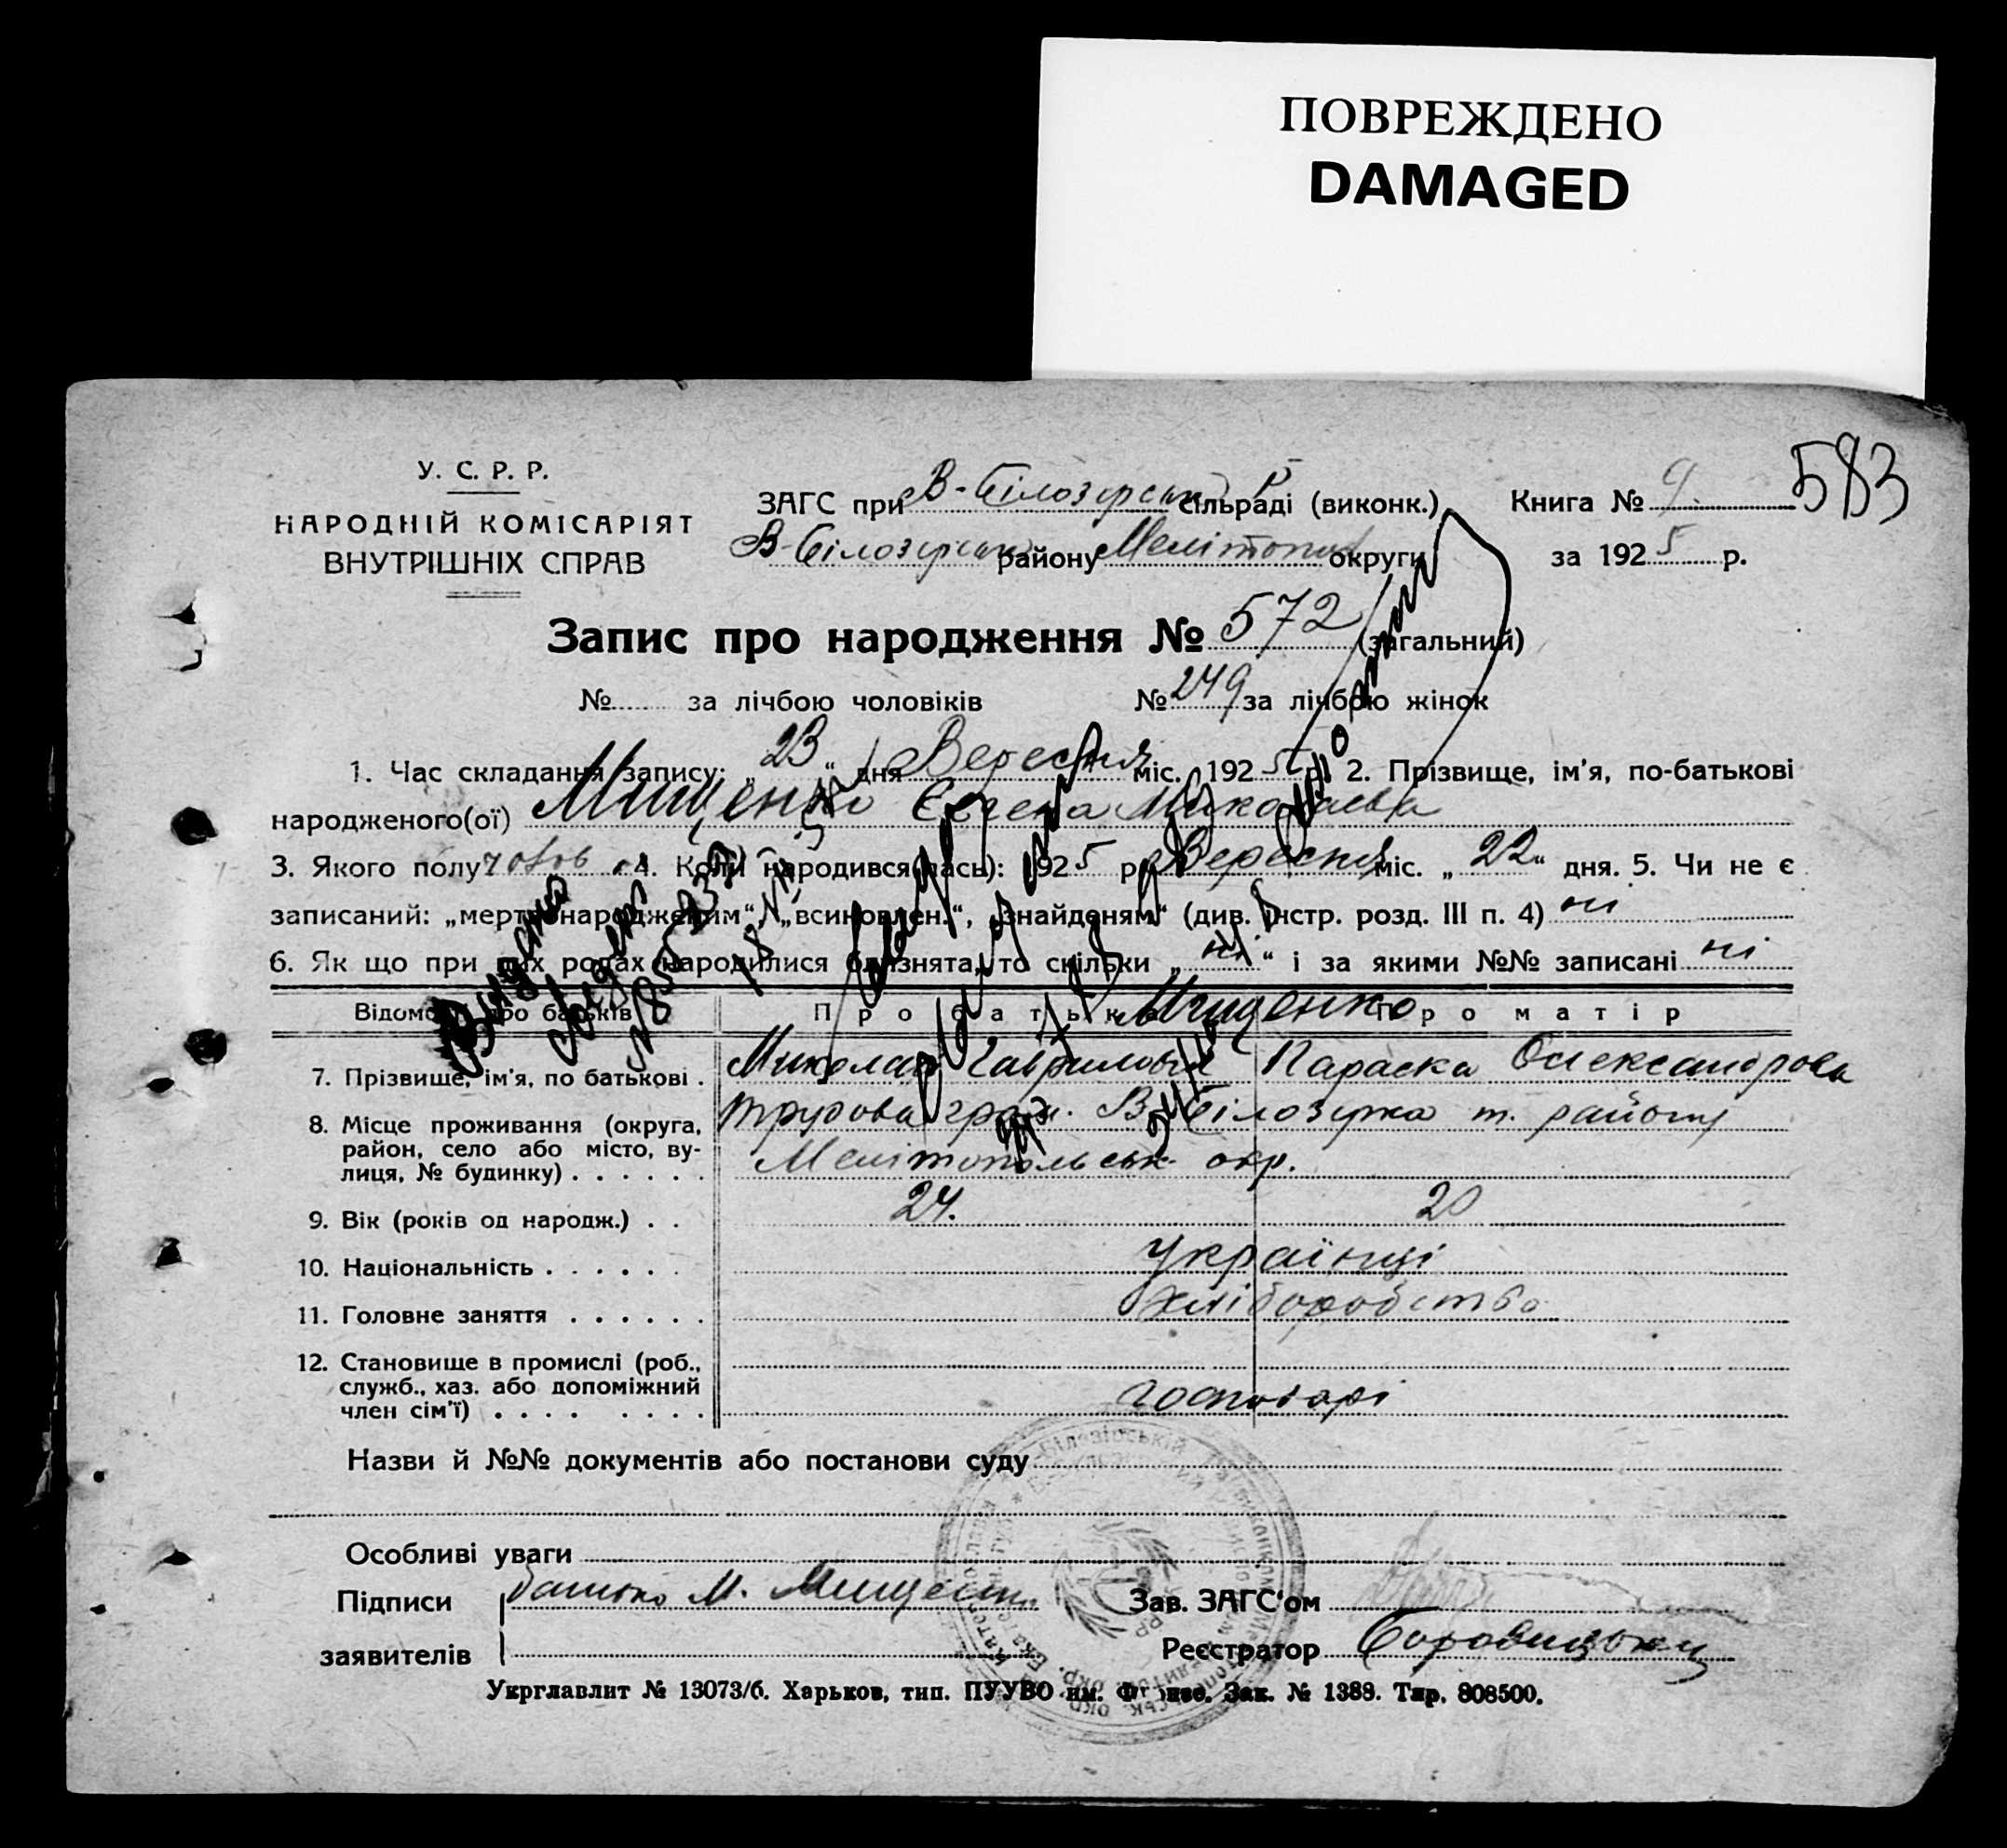 ПОВРЕЖДЕНО
DAMAGED
583
У. С. Р. Р.
НАРОДНІЙ КОМІСАРІЯТ
ВНУТРІШНІХ СПРАВ
ЗАГС при В-Білозерськ сільраді (виконк.)
В-Білозерськ району Мелітопол округи
Книга № 9
за 1925 р.
Запис про народження № 572 (загальний)
№ за лічбою чоловіків № 249 за лічбою жінок
1. Час складання запису: „23“ дня Вересня міс. 1925 р. 2. Прізвище, ім’я, по-батькові
народженого(ої) Мищенко Євгена Миколаева
3. Якого полу 4. Коли народився(лась): 1925 р. Вересня міс. „22“ дня. 5. Чи не є
записаний: „мертвонародженим“, „всиновлен.“, „знайденям“ (див. інстр. розд. III п. 4) ні
6. Як що при цих родах народилися близнята, то скільки „ні“ і за якими №№ записані ні
Відомости про батьків Про батька Про матір
Мищенко
7. Прізвище, ім’я, по батькові . Микола Гаврилович Параска Олександрова
8. Місце проживання (округа, район, село або місто, вулиця, № будинку) . . . . . . В Білозерка т. району
Мелітопольськ окр.
9. Вік (років од народж.) . . 24. 20
10. Національність . . . . . . Українці
11. Головне заняття . . . . . . Хліборобство
12. Становище в промислі (роб.,
служб., хаз. або допоміжний
член сім’ї) . . . . . . . . господарі
Назви й №№ документів або постанови суду
Особливі уваги
Підписи батько М. Мищенко Зав. ЗАГС‘ом
заявителів Реєстратор
Укрглавлит № 13073/б. Харьков, тип. ПУУВО им. Фрунзе. Зак. № 1388. Тир. 808500.